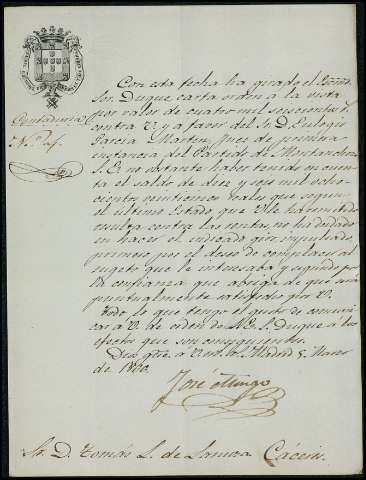 Contaduria
Con esta fecha ha girado el Excmo.
Sor. Duque carta orden á la vista
por valor de cuatro mil seiscientos r.
contra V. y á favor del Sr. D. Eulogio
Garcia Martin, Juez de primera
instancia del Partido de Montanchez
S. E. no obstante haber tenido en cuen-
ta el saldo de diez y seis mil ocho-
cientos veintiun reales que segun
el último Estado que V. le ha remitido
resulta contra las rentas, no ha dudado
en hacer el indicado giro, impulsado,
primero por el deseo de complacer al
sujeto que le interesaba y segundo por
la confianza que abriga de que será
puntualmente satisfecho por V.
Todo lo que tengo el gusto de comuni-
car á V. de orden de S. E. el Duque á los
efectos que son consiguientes.
Dios gue. á V. m. a. Madrid 8 Marzo
de 1860.
José
Sr. D. Tomás L. de Cáceres.